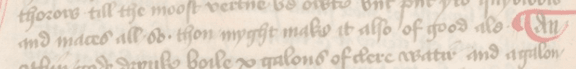 thorow till the moost vertue be owte
and maces all so thou myght make it also of good ale An
boile x galons of clere watir and a galon